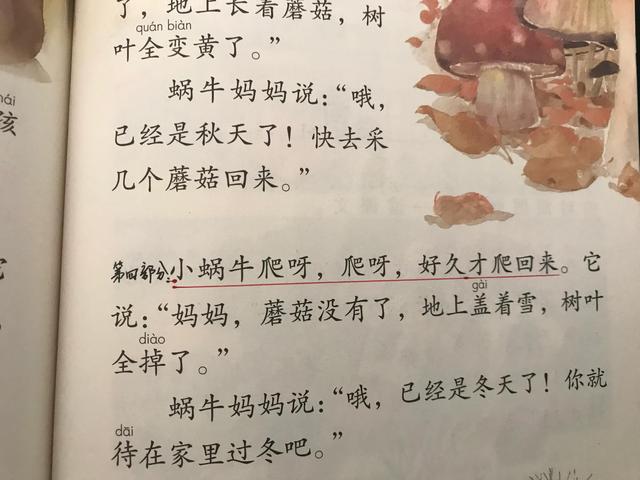 了，地上长着蘑菇，树
quán biàn
叶全变黄了。”
蜗牛妈妈说：“哦，
已经是秋天了！快去采
几个蘑菇回来。”
第四部分：小蜗牛爬呀，爬呀，好久才爬回来。它
gài
说：“妈妈，蘑菇没有了，地上盖着雪，树叶
diào
全掉了。”
蜗牛妈妈说：“哦，已经是冬天了！你就
dāi
待在家里过冬吧。”
hái
孩